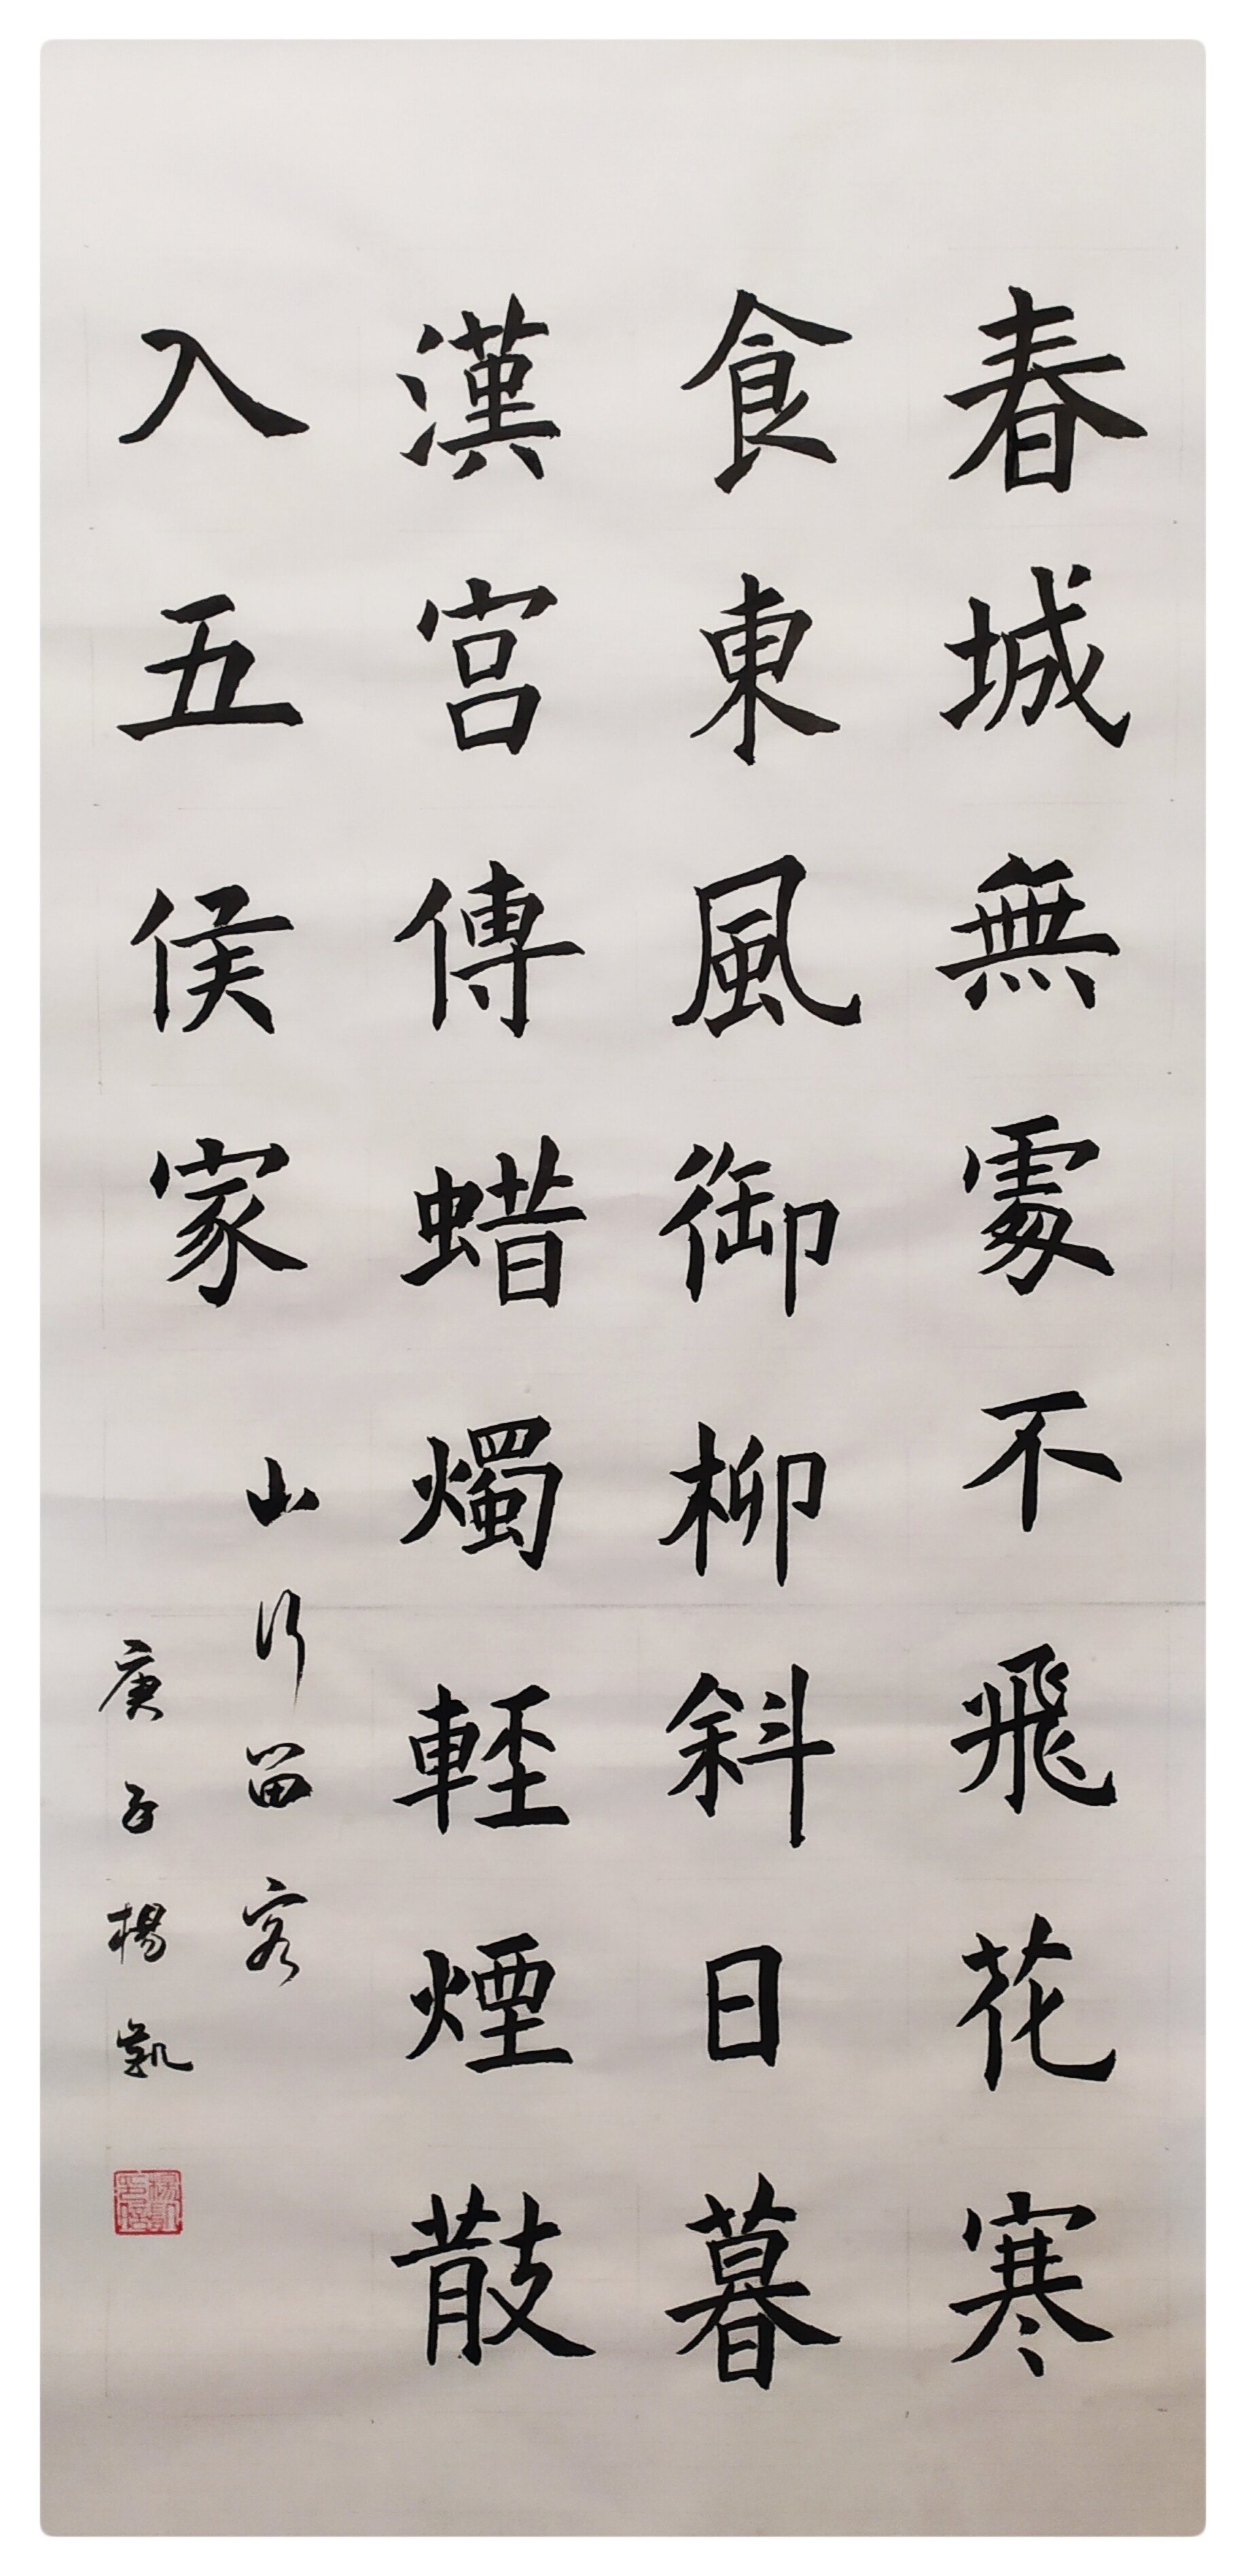 春城無處不飛花寒
食東風御柳斜日暮
漢宮傳蜡燭輕煙散
入五侯家
山行留客
庚子楊凱